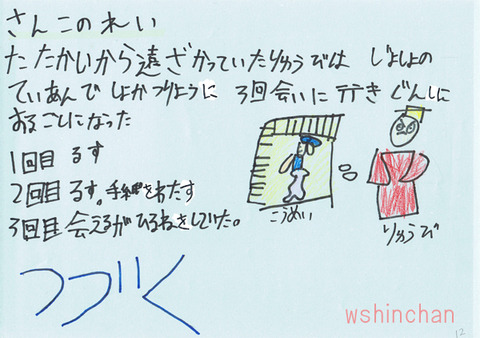 さんこのれい
たたかいから遠ざかっていたりゅうびは じょしょの
ていあんで しょかつりょうに 3回会いに行き ぐんしに
することになった
1回目 るす
2回目 るす。手紙をわたす
3回目 会えるがひるねをしていた。
こうめい
りゅうび
つづく
wshinchan
12